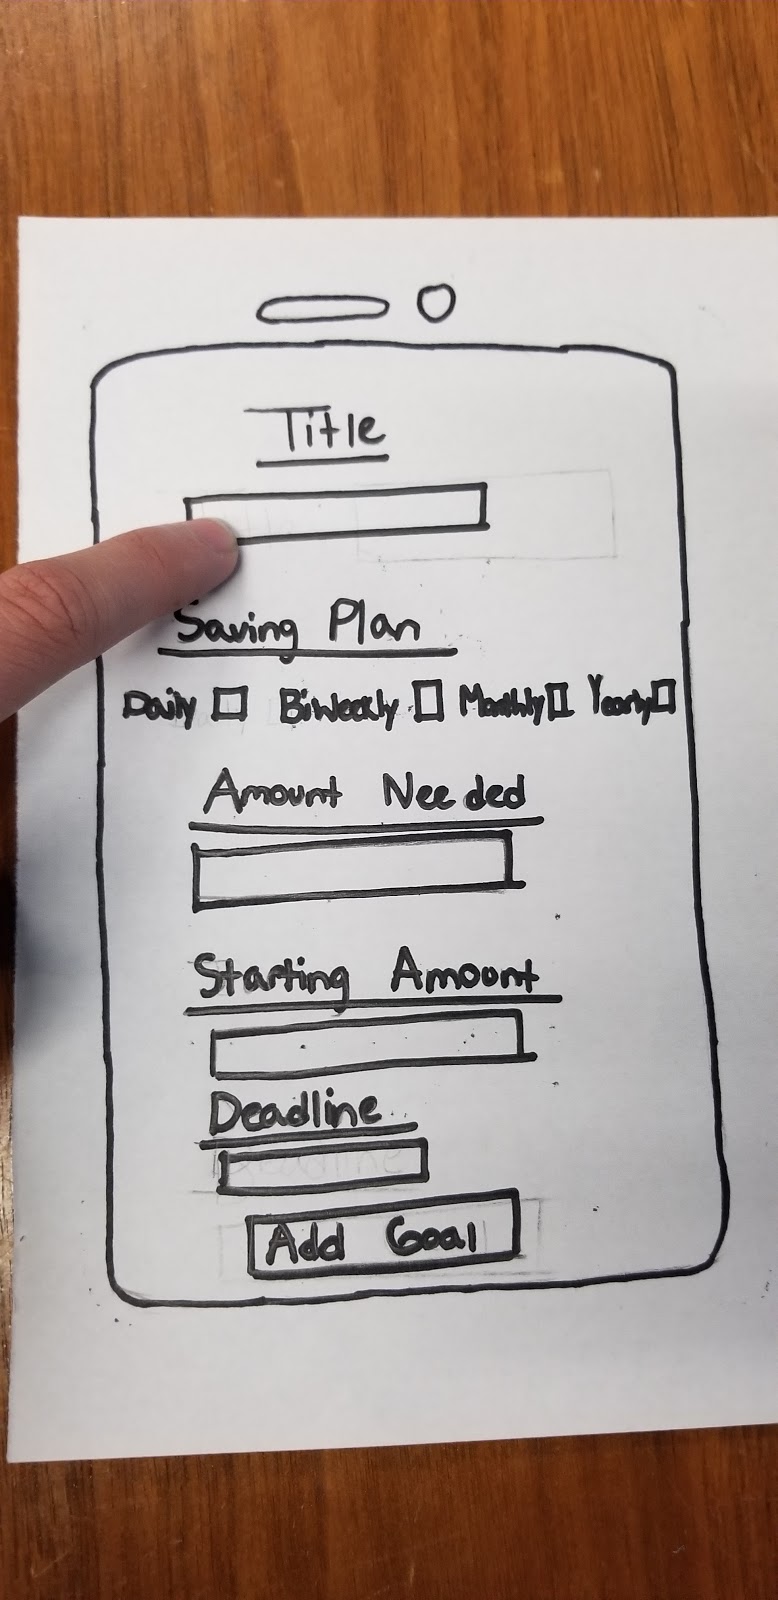 Title
Saving Plan
Daily Biweekly Monthly Yearly
Amount Needed
Starting Amount
Deadline
Add Goal